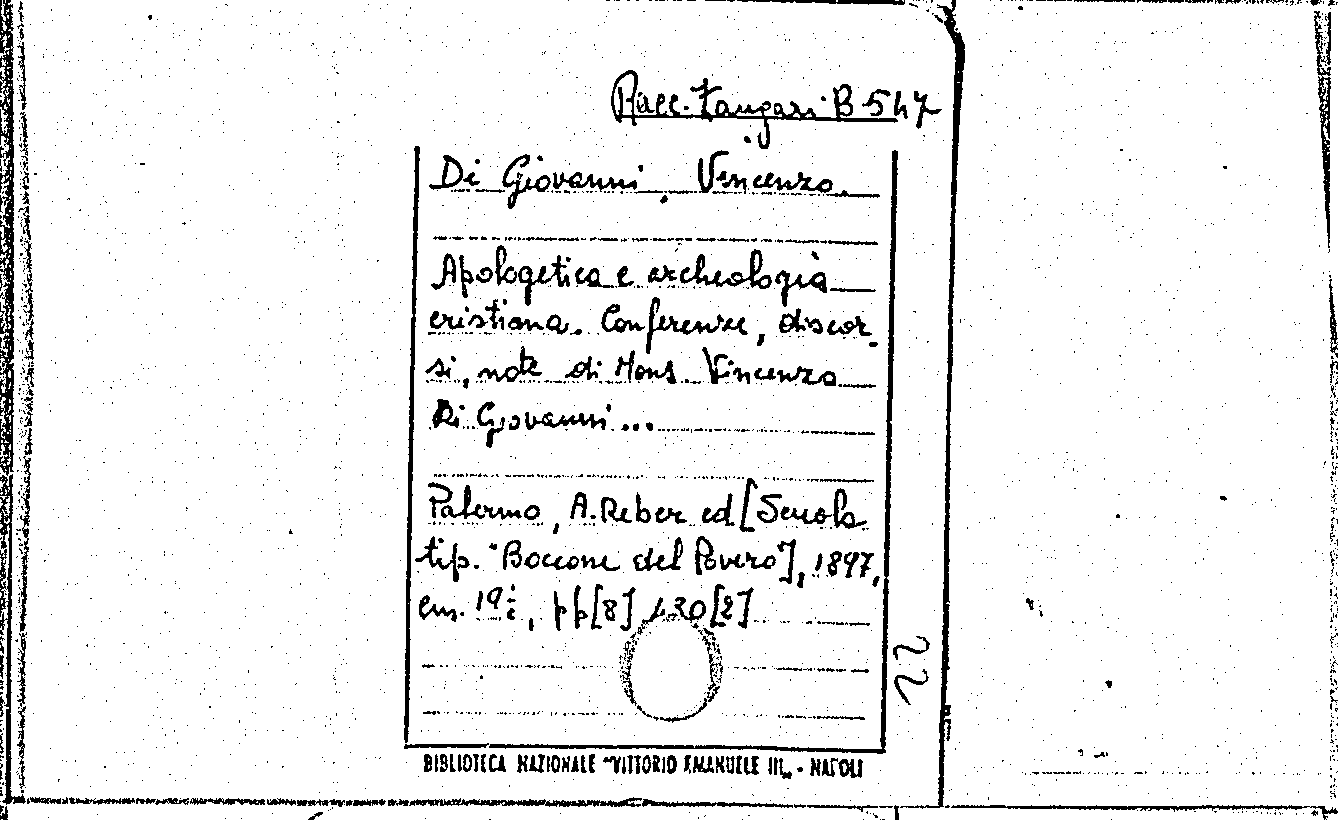 Racc. Tangari B 547
Di Giovanni, Vincenzo.
Apologetica e archeologia
cristiana. Conferenze, discor-
si, note di Mons. Vincenzo
Di Giovanni...
Palermo, A. Reber ed [Scuola
tip. "Boccone del Povero"], 1897,
cm. 19½, pp [8] 430 [2]
22
BIBLIOTECA NAZIONALE "VITTORIO EMANUELE III„ - NAPOLI